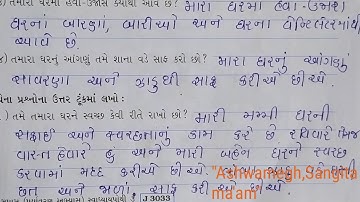 ૩) તમારા ઘરમાં હવા-ઉજાસ ક્યાંથી આવે છે ? મારા ઘરમાં હવા-ઉજાસ
ઘરનાં બારણાં, બારીઓ અને ઘરના વેન્ટિલેટરમાંથી
આવે છે.
૪) તમારા ઘરનું આંગણું તમે શાના વડે સાફ કરો છો ? મારા ઘરનું આંગણું
સાવરણા અને ઝાડુથી સાફ કરીએ છીએ.
પ્રશ્નોના ઉત્તર ટૂંકમાં લખો :
) તમે તમારા ઘરને સ્વચ્છ કેવી રીતે રાખો છો ? મારી મમ્મી ઘરની
સફાઈ અને સ્વચ્છતાનું કામ કરે છે. રવિવારે
વાર-તહેવારે હું અને મારી બહેન ઘરને સ્વચ્છ
કરવામાં મદદ કરીએ છીએ.
છત અને સાફ કરીએ છીએ.
"Ashwamegh,Sangita
ma'am
સ્વાધ્યાયપોથી J 3033